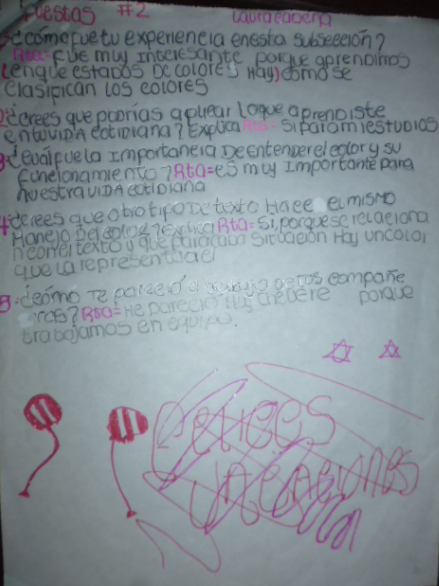 puestas #2 Laura cabeza
¿cómo fue tu experiencia en esta subsección?
Rta= FUE muy interesante porque aprendimos
en que estados De colores Hay) cómo se
clasifican los colores
¿crees que podrías aplicar lo que aprendiste
en tu VIDA cotidiana? Explica Rta= Si para mi estudios
¿cuál fue la importancia De entender el color y su
funcionamiento? Rta= es muy importante para
nuestra VIDA cotidiana
4 ¿crees que otro tipo De texto Hace el mismo
manejo Del color? Explica Rta= Si, porque se relaciona
con el texto y que para cada situación Hay un color
que la represent
5 ¿cómo te pareció el trabajo de tus compañe
ros? Rta= Me pareció muy chevere porque
trabajamos en equipo.
Felices
vacaciones